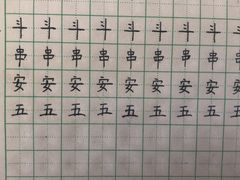 斗斗斗斗斗斗斗斗斗
串串串串串串串串串
安安安安安安安安安
五五五五五五五五五